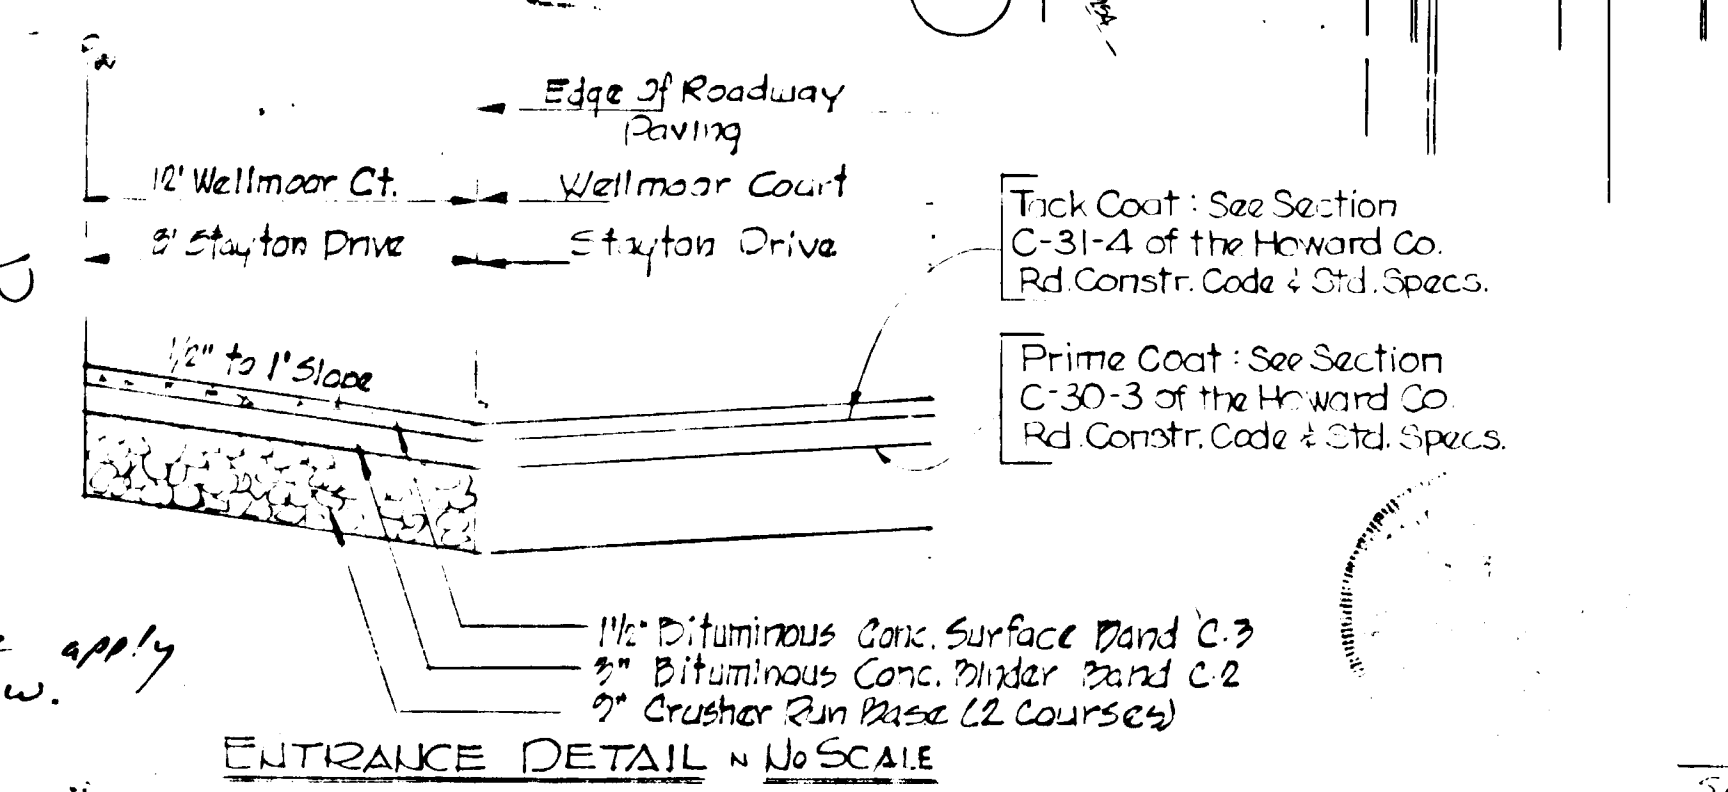 Edge Of Roadway
Paving
12' Wellmoor Ct.
Wellmoor Court
8' Stayton Drive
Stayton Drive
Tack Coat : See Section
C-31-4 of the Howard Co.
Rd. Constr. Code & Std. Specs.
1/2" to 1' Slope
Prime Coat : See Section
C-30-3 of the Howard Co.
Rd. Constr. Code & Std. Specs.
apply
w.
1 1/2" Bituminous Conc. Surface Band C.3
3" Bituminous Conc. Binder Band C.2
9" Crusher Run Base (2 Courses)
ENTRANCE DETAIL ~ No SCALE